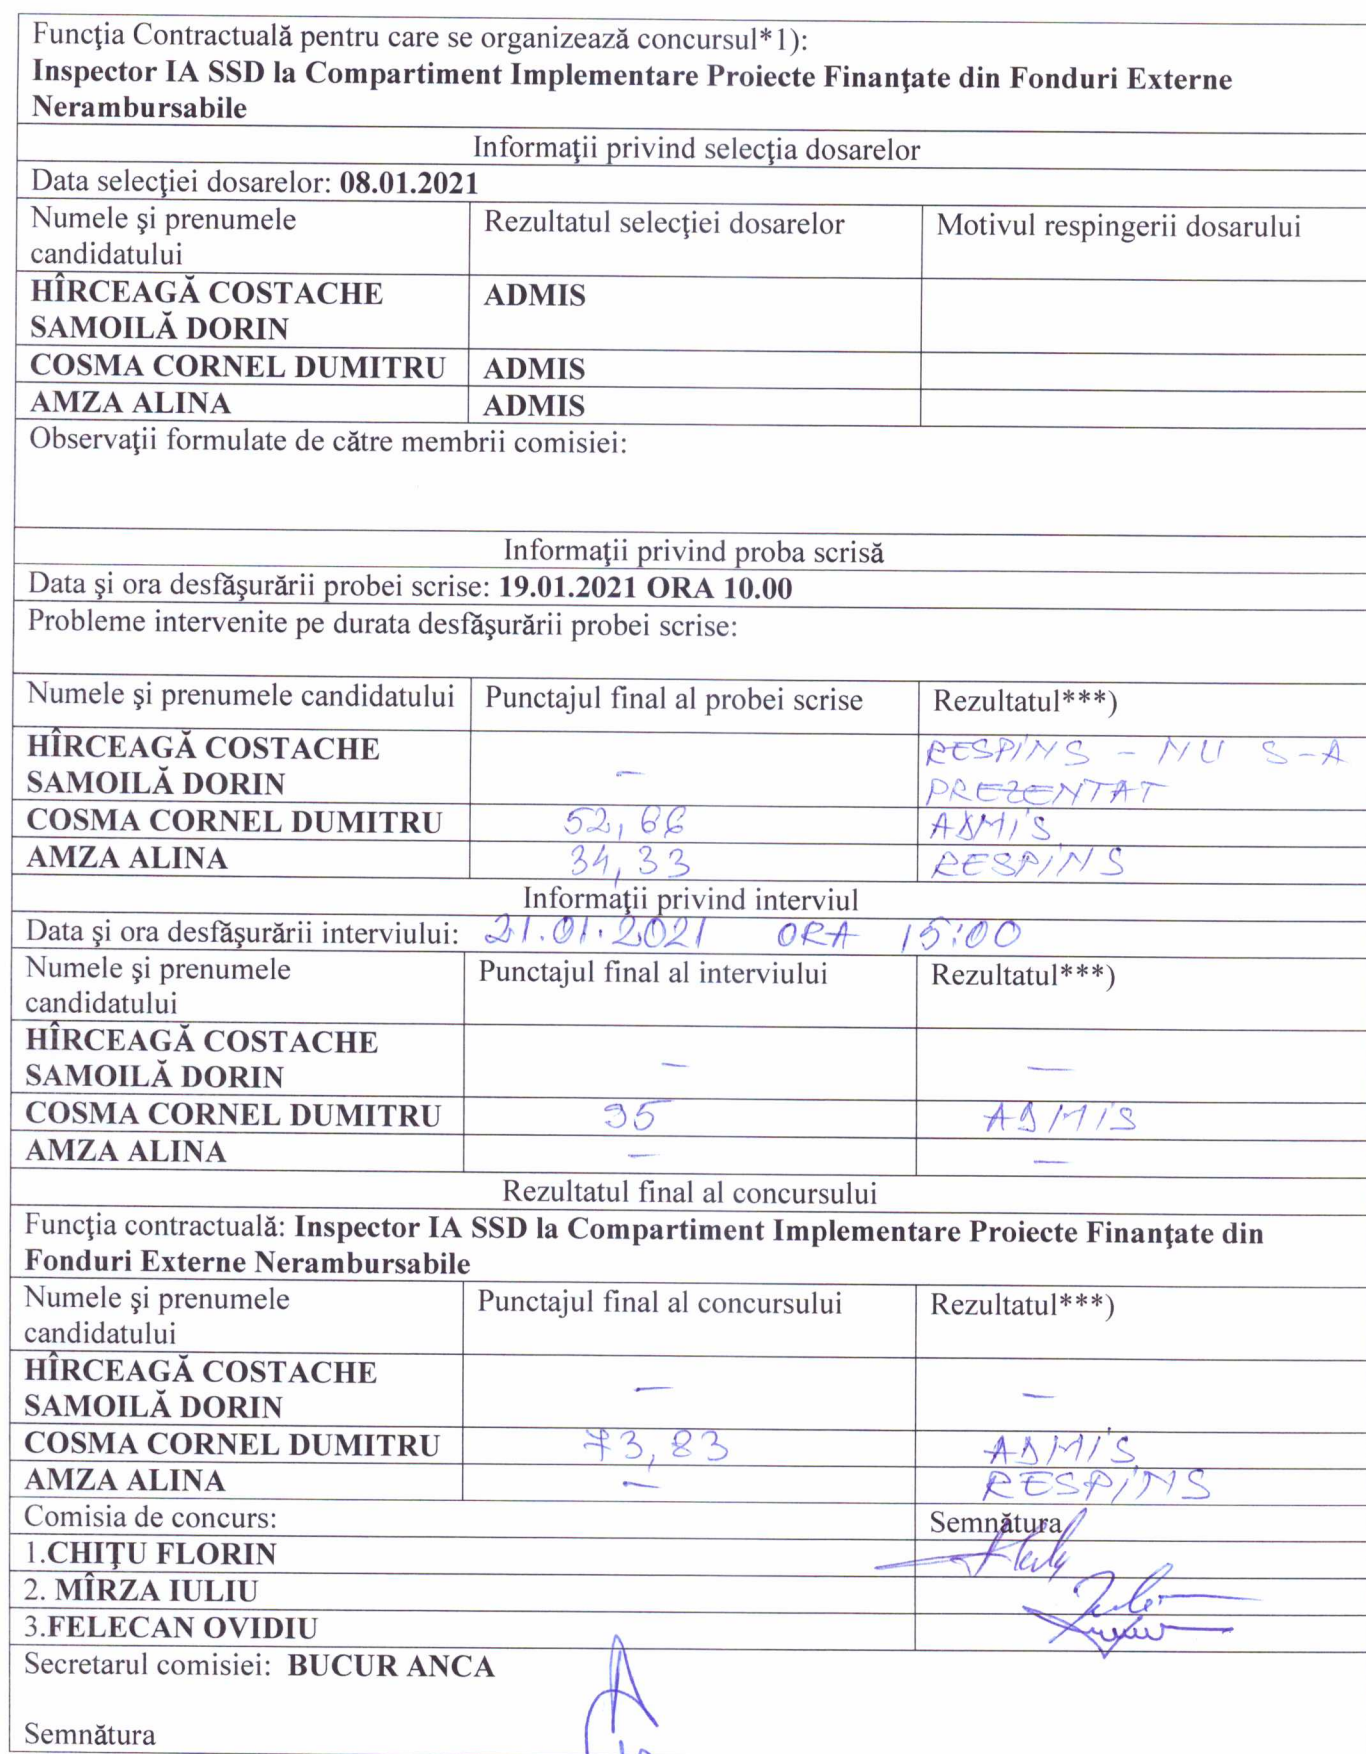 Funcţia Contractuală pentru care se organizează concursul*1):
Inspector IA SSD la Compartiment Implementare Proiecte Finanţate din Fonduri Externe
Nerambursabile
Informaţii privind selecţia dosarelor
Data selecţiei dosarelor: 08.01.2021
Numele şi prenumele candidatului Rezultatul selecţiei dosarelor Motivul respingerii dosarului
HÎRCEAGĂ COSTACHE ADMIS
SAMOILĂ DORIN
COSMA CORNEL DUMITRU ADMIS
AMZA ALINA ADMIS
Observaţii formulate de către membrii comisiei:
Informaţii privind proba scrisă
Data şi ora desfăşurării probei scrise: 19.01.2021 ORA 10.00
Probleme intervenite pe durata desfăşurării probei scrise:
Numele şi prenumele candidatului Punctajul final al probei scrise Rezultatul***)
HÎRCEAGĂ COSTACHE RESPINS - NU S-A
SAMOILĂ DORIN — PREZENTAT
COSMA CORNEL DUMITRU 52,66 ADMIS
AMZA ALINA 34,33 RESPINS
Informaţii privind interviul
Data şi ora desfăşurării interviului: 21.01.2021 ORA 15:00
Numele şi prenumele candidatului Punctajul final al interviului Rezultatul***)
HÎRCEAGĂ COSTACHE
SAMOILĂ DORIN — —
COSMA CORNEL DUMITRU 95 ADMIS
AMZA ALINA — —
Rezultatul final al concursului
Funcţia contractuală: Inspector IA SSD la Compartiment Implementare Proiecte Finanţate din
Fonduri Externe Nerambursabile
Numele şi prenumele candidatului Punctajul final al concursului Rezultatul***)
HÎRCEAGĂ COSTACHE
SAMOILĂ DORIN — —
COSMA CORNEL DUMITRU 73,83 ADMIS
AMZA ALINA — RESPINS
Comisia de concurs: Semnătura
1.CHIŢU FLORIN
2. MÎRZA IULIU
3.FELECAN OVIDIU
Secretarul comisiei: BUCUR ANCA
Semnătura